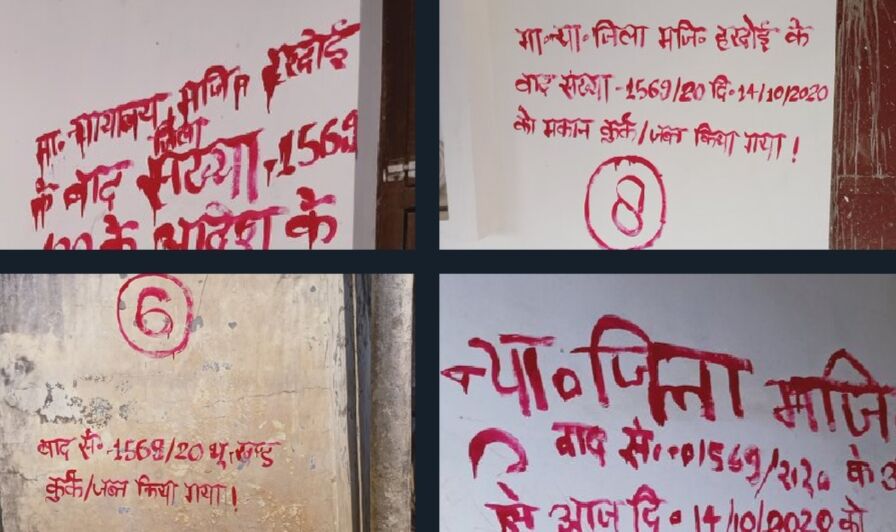 मा. न्यायालय जिला मजि० हरदोई
के वाद संख्या -1569
/20 के आदेश के
मा.न्या.जिला मजि० हरदोई के
वाद संख्या -1569/20 दि. 14/10/2020
को मकान कुर्क/जब्त किया गया !
8
6
वाद सं. -1569/20 भू. खण्ड
कुर्क/जब्त किया गया !
न्या० जिला मजि
वाद सं. 1569/2020 के
से आज दि० 14/10/2020 को